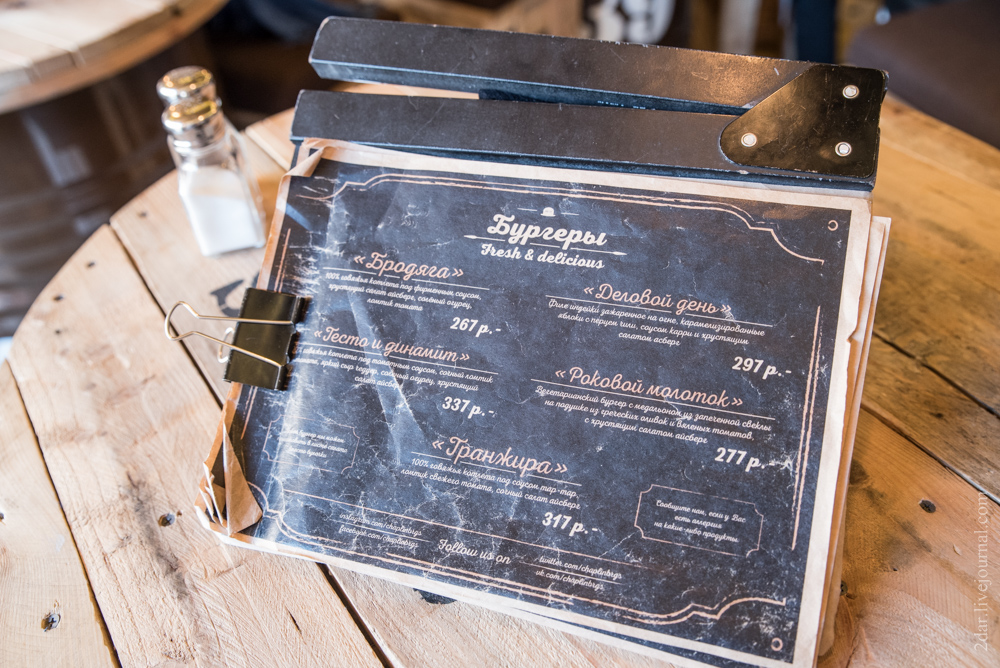 Бургеры
Fresh & delicious
«Бродяга»
100% говяжья котлета под фирменным соусом,
хрустящий салат айсберг, солёный огурец,
ломтик томата
267 р.-
«Тесто и динамит»
говяжья котлета под томатным соусом, сочный ломтик
яркий сыр чеддер, солёный огурец, хрустящий
салат айсберг
337 р.-
«Транжира»
100% говяжья котлета под соусом тар-тар,
ломтик свежего томата, сочный салат айсберг
317 р.-
«Деловой день»
Филе индейки зажаренное на огне, карамелизированные
яблоки с перцем чили, соусом карри и хрустящим
салатом айсберг
297 р.-
«Роковой молоток»
Вегетарианский бургер с медальоном из запеченной свеклы
на подушке из греческих оливок и вяленых томатов,
с хрустящим салатом айсберг
277 р.-
Сообщите нам, если у Вас
есть аллергия
на какие-либо продукты
instagram.com/chaplinbrgs
facebook.com/chaplinbrgs
Follow us on
twitter.com/chaplinbrgs
vk.com/chaplinbrgs
2dar.livejournal.com